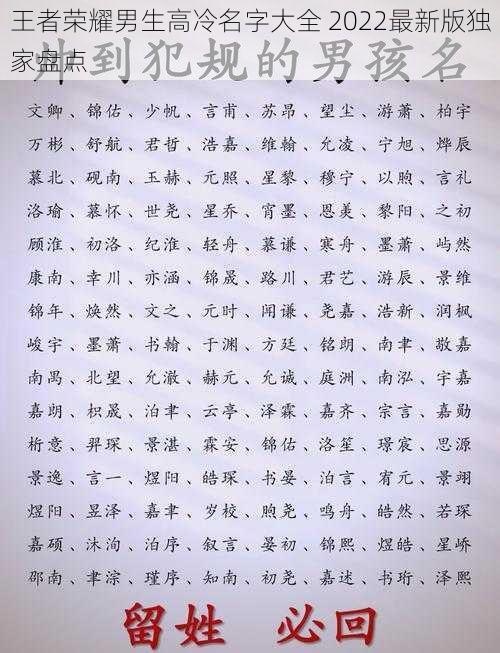 王者荣耀男生高冷名字大全 2022最新版独
家盘点
到犯规的男孩名
文卿、锦佑、少帆、言甫、苏昂、望尘、游萧、柏宇
万彬、舒航、君哲、浩嘉、维翰、允凌、宁旭、烨辰
慕北、砚南、玉赫、元照、星黎、穆宁、以煦、言礼
洛瑜、慕怀、世尧、星乔、宵墨、恩美、黎阳、之初
顾淮、初洛、纪淮、轻舟、慕谦、寒舟、墨萧、屿然
康南、幸川、亦涵、锦晟、路川、君艺、游辰、景维
锦年、焕然、文之、元时、闻谦、尧嘉、浩新、润枫
峻宇、墨萧、书翰、于渊、方廷、铭朗、南聿、敬嘉
南禺、北望、允澈、赫元、允诚、庭洲、南泓、宇嘉
嘉朗、枳晟、泊聿、云亭、泽霖、嘉齐、宗言、嘉勋
析意、羿琛、景湛、霖安、锦佑、洛笙、璟宸、思源
景逸、言一、煜阳、皓琛、书晏、泊言、宥元、景翊
煜阳、昱泽、嘉聿、岁校、煦尧、鸣舟、皓然、若琛
嘉硕、沐洵、泊序、叙言、晏初、锦熙、煜皓、星峤
邵南、聿淙、瑾序、知南、初尧、嘉述、书珩、泽熙
留姓 必回